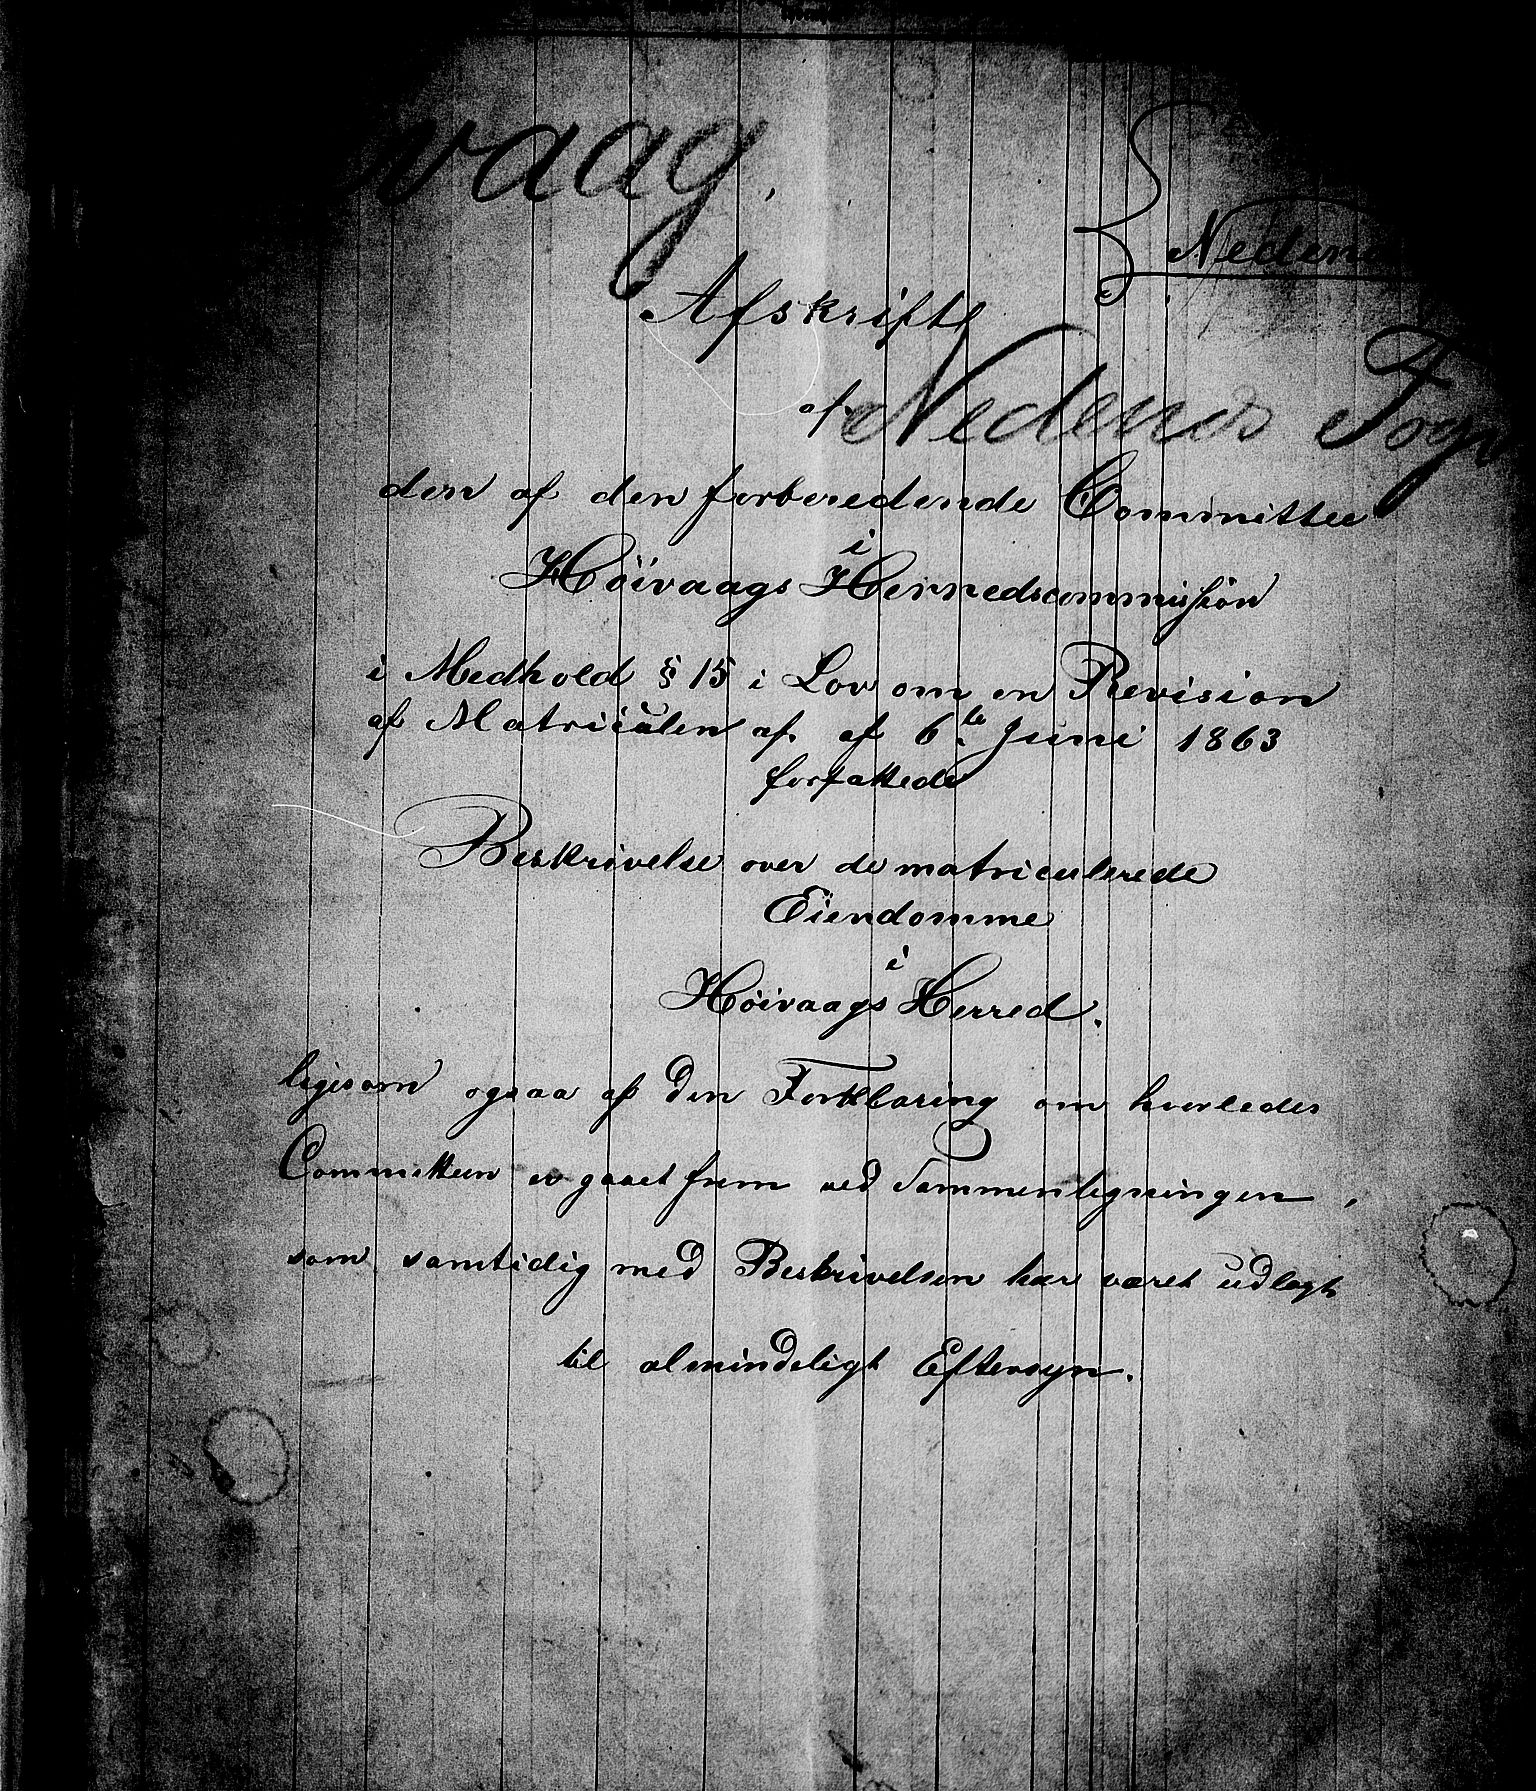 vaag.
Nedenes
Afskrift
af
Nedenes Fog
den af den forberedende Committee
i
Höivaags Herredscommission
i Medhold § 15 i Lov om en Revision
af Matriculen af af 6te Juni 1863
forfattede
Beskrivelse over de matriculerede
Eiendomme
i
Höivaags Herred.
ligesom ogsaa af den Forklaring om hvorledes
Committeen er gaaet frem ved Sammenligningen,
som samtidig med Beskrivelsen har været udlagt
til almindeligt Eftersyn.